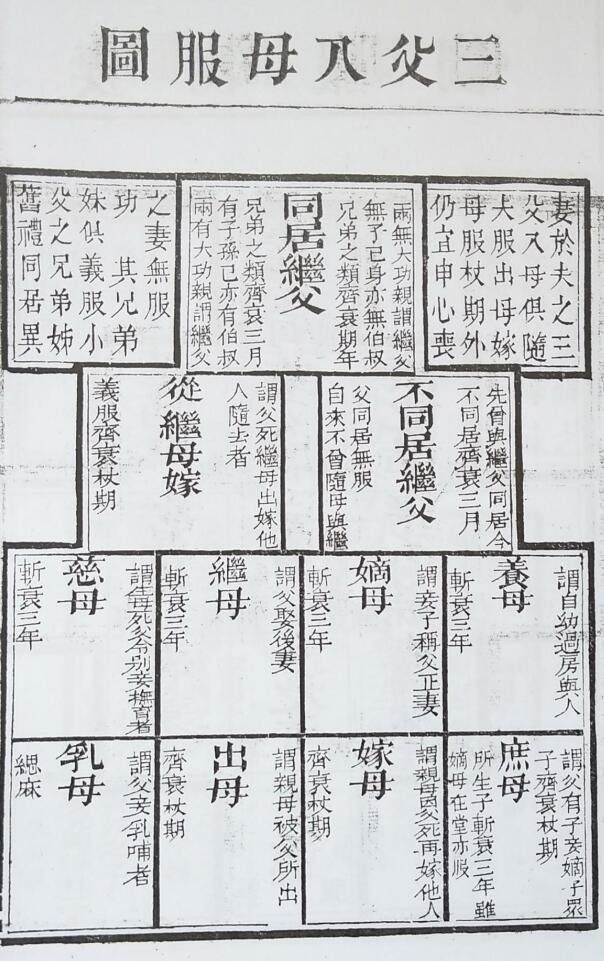 三父八母服圖
妻於夫之三
父八母俱隨
夫服出母嫁
母服杖期外
仍宜申心喪
同居繼父
兩無大功親謂繼父
無子己身亦無伯叔
兄弟之類齊衰期年
兩有大功親謂繼父
有子孫己亦有伯叔
兄弟之類齊衰三月
舊禮同居異
父之兄弟姊
妹俱義服小
功　其兄弟
之妻無服
不同居繼父
先曾與繼父同居今
不同居齊衰三月
自來不曾隨母與繼
父同居無服
從繼母嫁
謂父死繼母出嫁他
人隨去者
義服齊衰杖期
養母
謂自幼過房與人
斬衰三年
嫡母
謂妾子稱父正妻
斬衰三年
繼母
謂父娶後妻
斬衰三年
慈母
謂生母死父令別妾撫育者
斬衰三年
庶母
謂父有子妾嫡子眾
子齊衰杖期
所生子斬衰三年雖
嫡母在堂亦服
嫁母
謂親母因父死再嫁他人
齊衰杖期
出母
謂親母被父所出
齊衰杖期
乳母
謂父妾乳哺者
緦麻